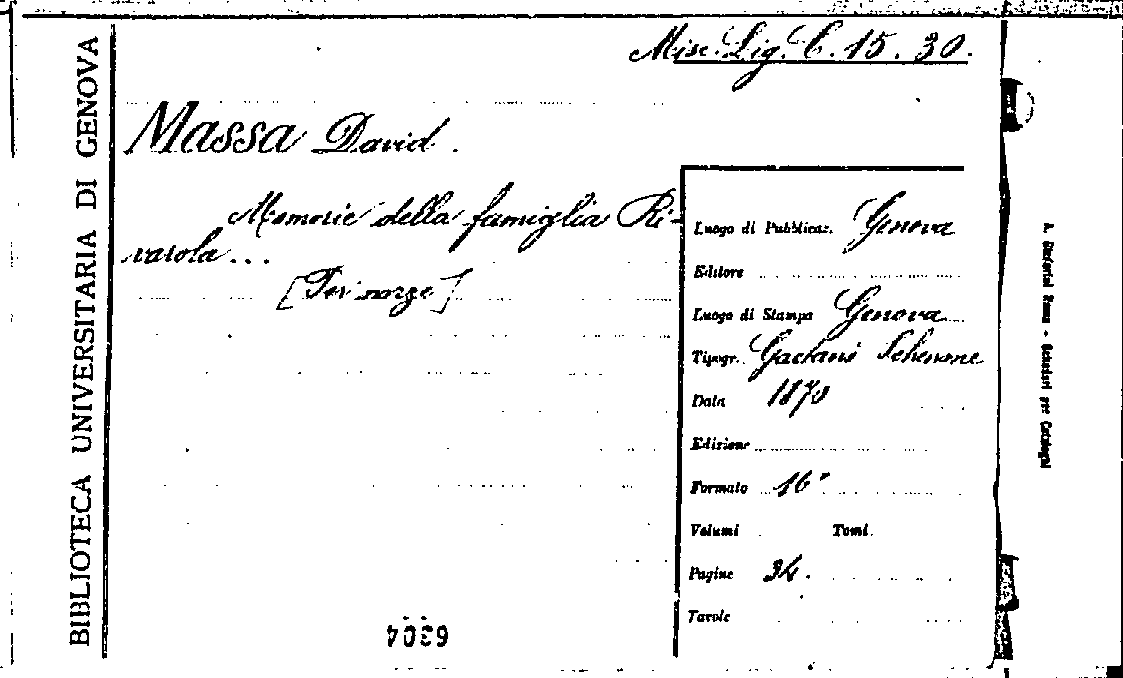 Misc. Lig. C. 15. 30.
BIBLIOTECA UNIVERSITARIA DI GENOVA
Massa David.
Memorie della famiglia Ri-
varola...
[Per nozze]
Luogo di Pubblicaz. Genova
Editore
Luogo di Stampa Genova
Tipogr. Gaetano Schenone
Data 1870
Edizione
Formato 16°
Volumi Tomi
Pagine 34.
Tavole
6304
Schedari per Cataloghi